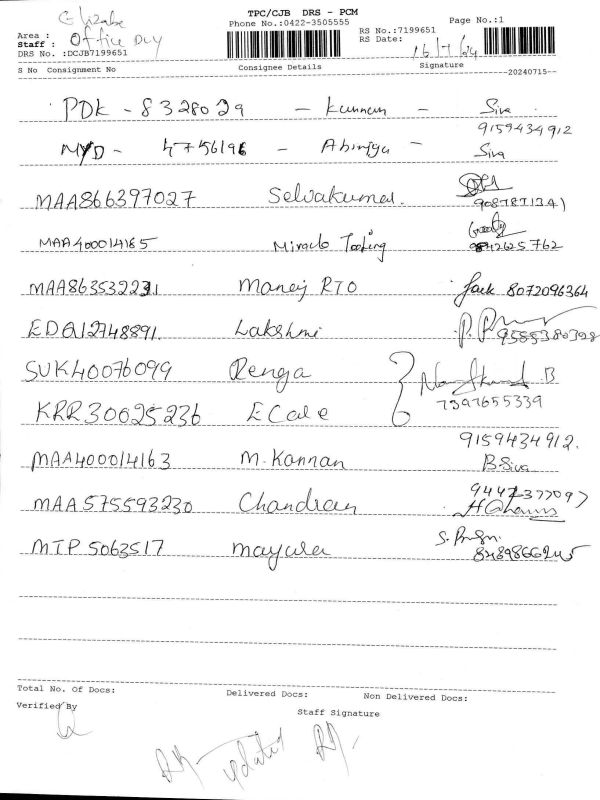 TPC/CJB DRS - PCM
Phone No.:0422-3505555
Page No.:1
Area : Elizabe
Staff : Office Duy
DRS No. :DCJB7199651
RS No.:7199651
RS Date: 16/7/24
S No Consignment No Consignee Details Signature
--20240715--
PDK - 8328029 - Kannan - Siva
9159434912
MYD - 4756196 - Abinaya - Siva
MAA866397027 Selvakumar. 9087871341
MAA400014165 Miracle Tooling 9842625762
MAA863532231 Manoj RTO Jack 8072096364
EDQ12748891. Lakshmi 9585380328
SUK40076099 Renga
KRR30625236 E Cale 7397655339
9159434912.
MAA400014163 M. Kannan B Siva
MAA575593230 Chandran 9447377097
MTP5063517 Mayula 8489866245
Total No. Of Docs: Delivered Docs: Non Delivered Docs:
Verified By Staff Signature
updated